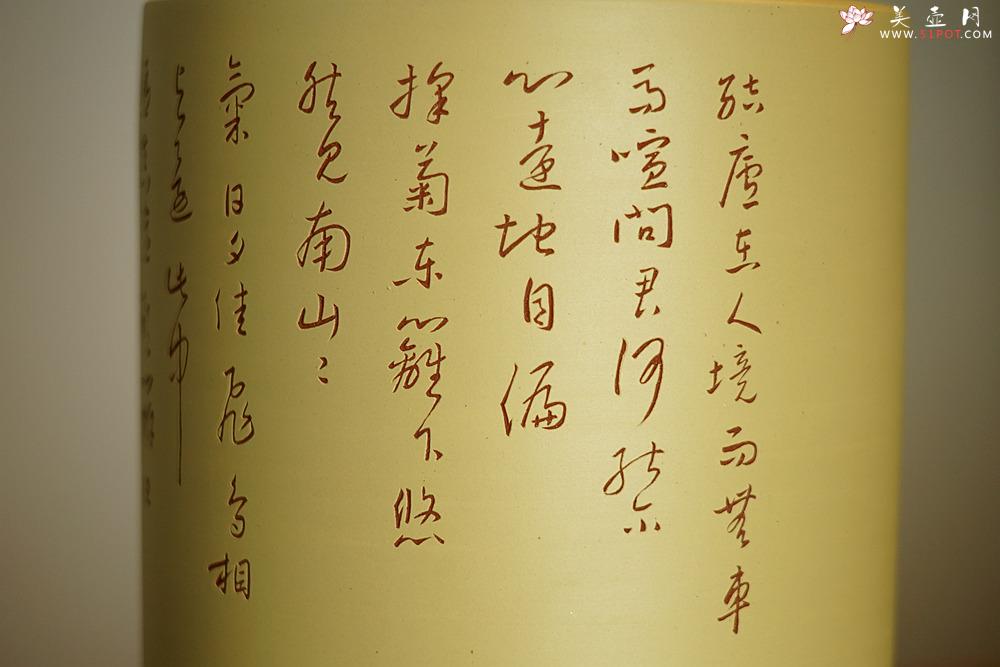 結廬在人境而無車
馬喧問君何能尔
心遠地自偏
採菊東籬下悠
然見南山〻
氣日夕佳飛鳥相
与還此中
美壺网
WWW.51POT.COM